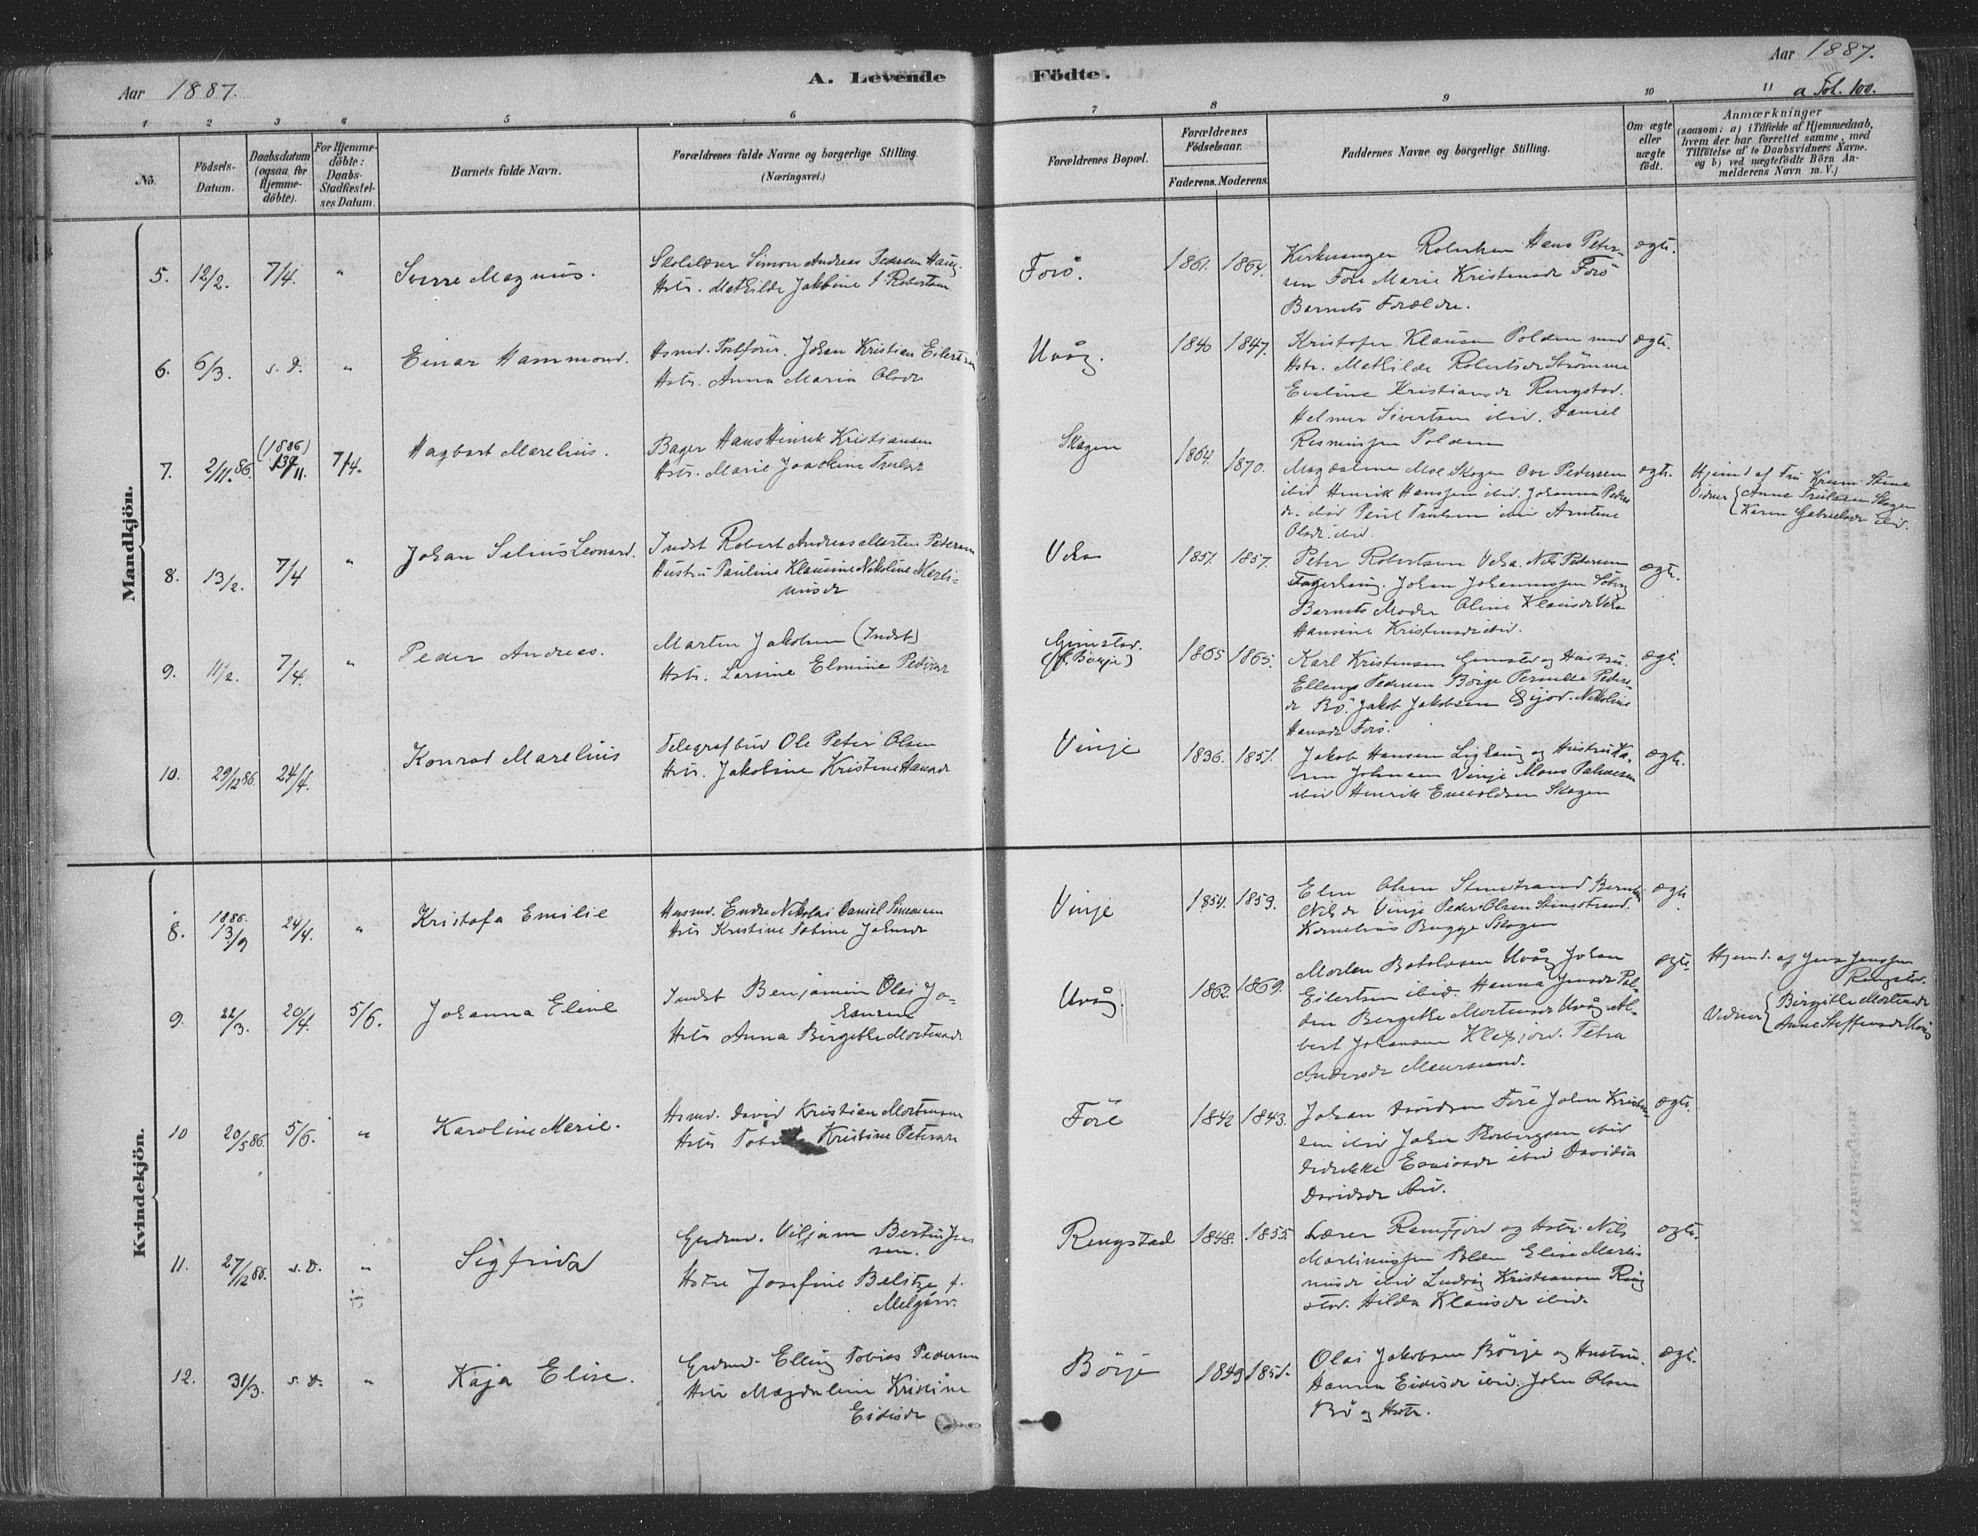 Aar 1887.
A. Levende Födte.
Aar 1887.
a Fol. 100.
1 2 3 4 5 6 7 8 9 10 11
No.
Födsels-Datum.
Daabsdatum (ogsaa for Hjemme-döbte).
For Hjemme-döbte: Daabs-Stadfæstel-ses Datum.
Barnets fulde Navn.
Forældrenes fulde Navne og borgerlige Stilling.
(Næringsvei.)
Forældrenes Bopæl.
Forældrenes Födselsaar.
Faderens. Moderens.
Faddernes Navne og borgerlige Stilling.
Om ægte eller uægte födt.
Anmærkninger
(saasom: a) i Tilfælde af Hjemmedaab, hvem der har forrettet samme, med Tilföielse af to Daabsvidners Navne. og b) ved uægtefödte Börn An-melderens Navn m. V.)
Mandkjön.
5. 12/2. 7/4. " Sverre Magnus.
Skolelærer Simon Andreas Pedersen Haug.
Hstr. Mathilde Jakobine f. Robertsen
Forö. 1861. 1864.
Kirkesanger Robertsen Hans Peter-
sen Före Marie Kristensdr Forö
Barnets Forældre.
ægte.
6. 6/3. s. D. " Einar Hammond.
Hsmd. Postförer. Johan Kristian Eilertsen
Hstr. Anna Maria Olsdr
Uvåg. 1840 1847.
Kristofer Klausen Polden med
Hstr. Mathilde Robertsdr Strömme
Eveline Kristiansdr Ringstad.
Helmer Sivertsen ibid. Daniel
Rasmussen Polden
ægte.
7. 2/11.86. (1886) 13/11. 7/4. Hagbart Marelius.
Bager Hans Hinrik Kristiansen
Hstr. Marie Joachine Trulsdr
Skogen 1864. 1870.
Magdalene Moe Skogen Ove Pedersen
ibid Henrik Hanssen ibid. Johanna Peders-
dr. ibid Paul Trulsen ibid Arntine
Olsdr. ibid.
ægte.
Hjemd. af Fru Krum Stene
Vidner Anne Trulsen Skogen
Karen Gabrielsdr ibid.
8. 13/2. 7/4 " Johan Selius Leonard.
Indst Robert Andreas Marten Pedersen
Hustru Pauline Klausine Nikoline Marti-
nusdr
Veka 1851. 1857.
Peter Robertsen Veka. Nils Pedersen
Fagerhaug. Johan Johannessen Söberg
Barnets Moder Oline Klausdr Veka
Hansine Kristensdr ibid.
ægte.
9. 11/2. 7/4. " Peder Andreas.
Martin Jakobsen (Indst)
Hstr. Larsine Elmine Pedersdr
Gimstad.
(f. Börje) 1865 1865.
Karl Kristensen Gimstad og Hustru.
Elling Pedersen Börge Pernille Peders-
dr Bö. Jakob Jakobsen Nikoline
Hansdr Forö.
ægte.
10. 29/12 86. 24/4. Konrad Marelius
Telegrafbud Ole Peter Olsen
Hstr. Jakobine Kristine Hansdr
Vinje 1836. 1851.
Jakob Hansen og Hustru Ka-
ren Johnsen Vinje Mons Paulsen
ibid Henrik Enevoldsen Skogen
ægte.
Kvindekjön.
8. 1886. 13/9 24/4. " Kristofa Emilie
Husmd. Endre Nikolai Daniel Simonsen
Hstr Kristine Tobine Johnsdr
Vinje 1854. 1859.
Elen Olsen Stenestrand
Nilsdr Vinje Peder Olsen Stenestrand.
Kornelius Bugge Skogen
ægte.
9. 22/3. 20/4. 5/6. Johanna Eline
Indst Benjamin Olai Jo-
hansen
Hstr Anna Birgitte Mortensdr
Uvåg. 1862. 1869.
Morten Uvåg Johan
Eilertsen ibid. Hanna Jensdr Pol-
den Bergitte Mortensdr Uvåg Al-
bert Johansen Klefjord. Petra
Andersdr Maursund.
ægte.
Hjemd. af Jens Jenssen
Ringstad.
Vidner Birgitte Mortensdr
Anne Steffensdr Uvåg
10 20/5 86. 5/6. " Karoline Marie.
Hsmd. David Kristian Mortensen
Hstr Kristine Petersdr
Före 1842 1843.
Johan Davidsen Före John Kristen-
sen ibid Johan Thorbergsen ibid
ibid Davidia
Davidsdr ibid.
ægte.
11. 27/12 86. s. D. " Sigfrida
Grdmd. Viljam Bertin Jens-
sen.
Hstru Josefine Belitze f.
Ringstad 1848. 1855
Lærer Ramfjord og Hstr. Nils
Martinussen Blæn Elise Marti-
nusdr ibid Ludvig Kristiansen Ring-
stad. Hilda Klausdr ibid.
ægte.
12. 31/3. s. D. " Kaja Elise.
Grdmd. Elling Tobias Pedersen
Hstr Magdalene Kristine
Eidisdr
Börje 1849 1851.
Olai Jakobsen Börje og Hustru.
Hanna Eidisdr ibid. John Olsen
Bö og Hstr.
ægte.